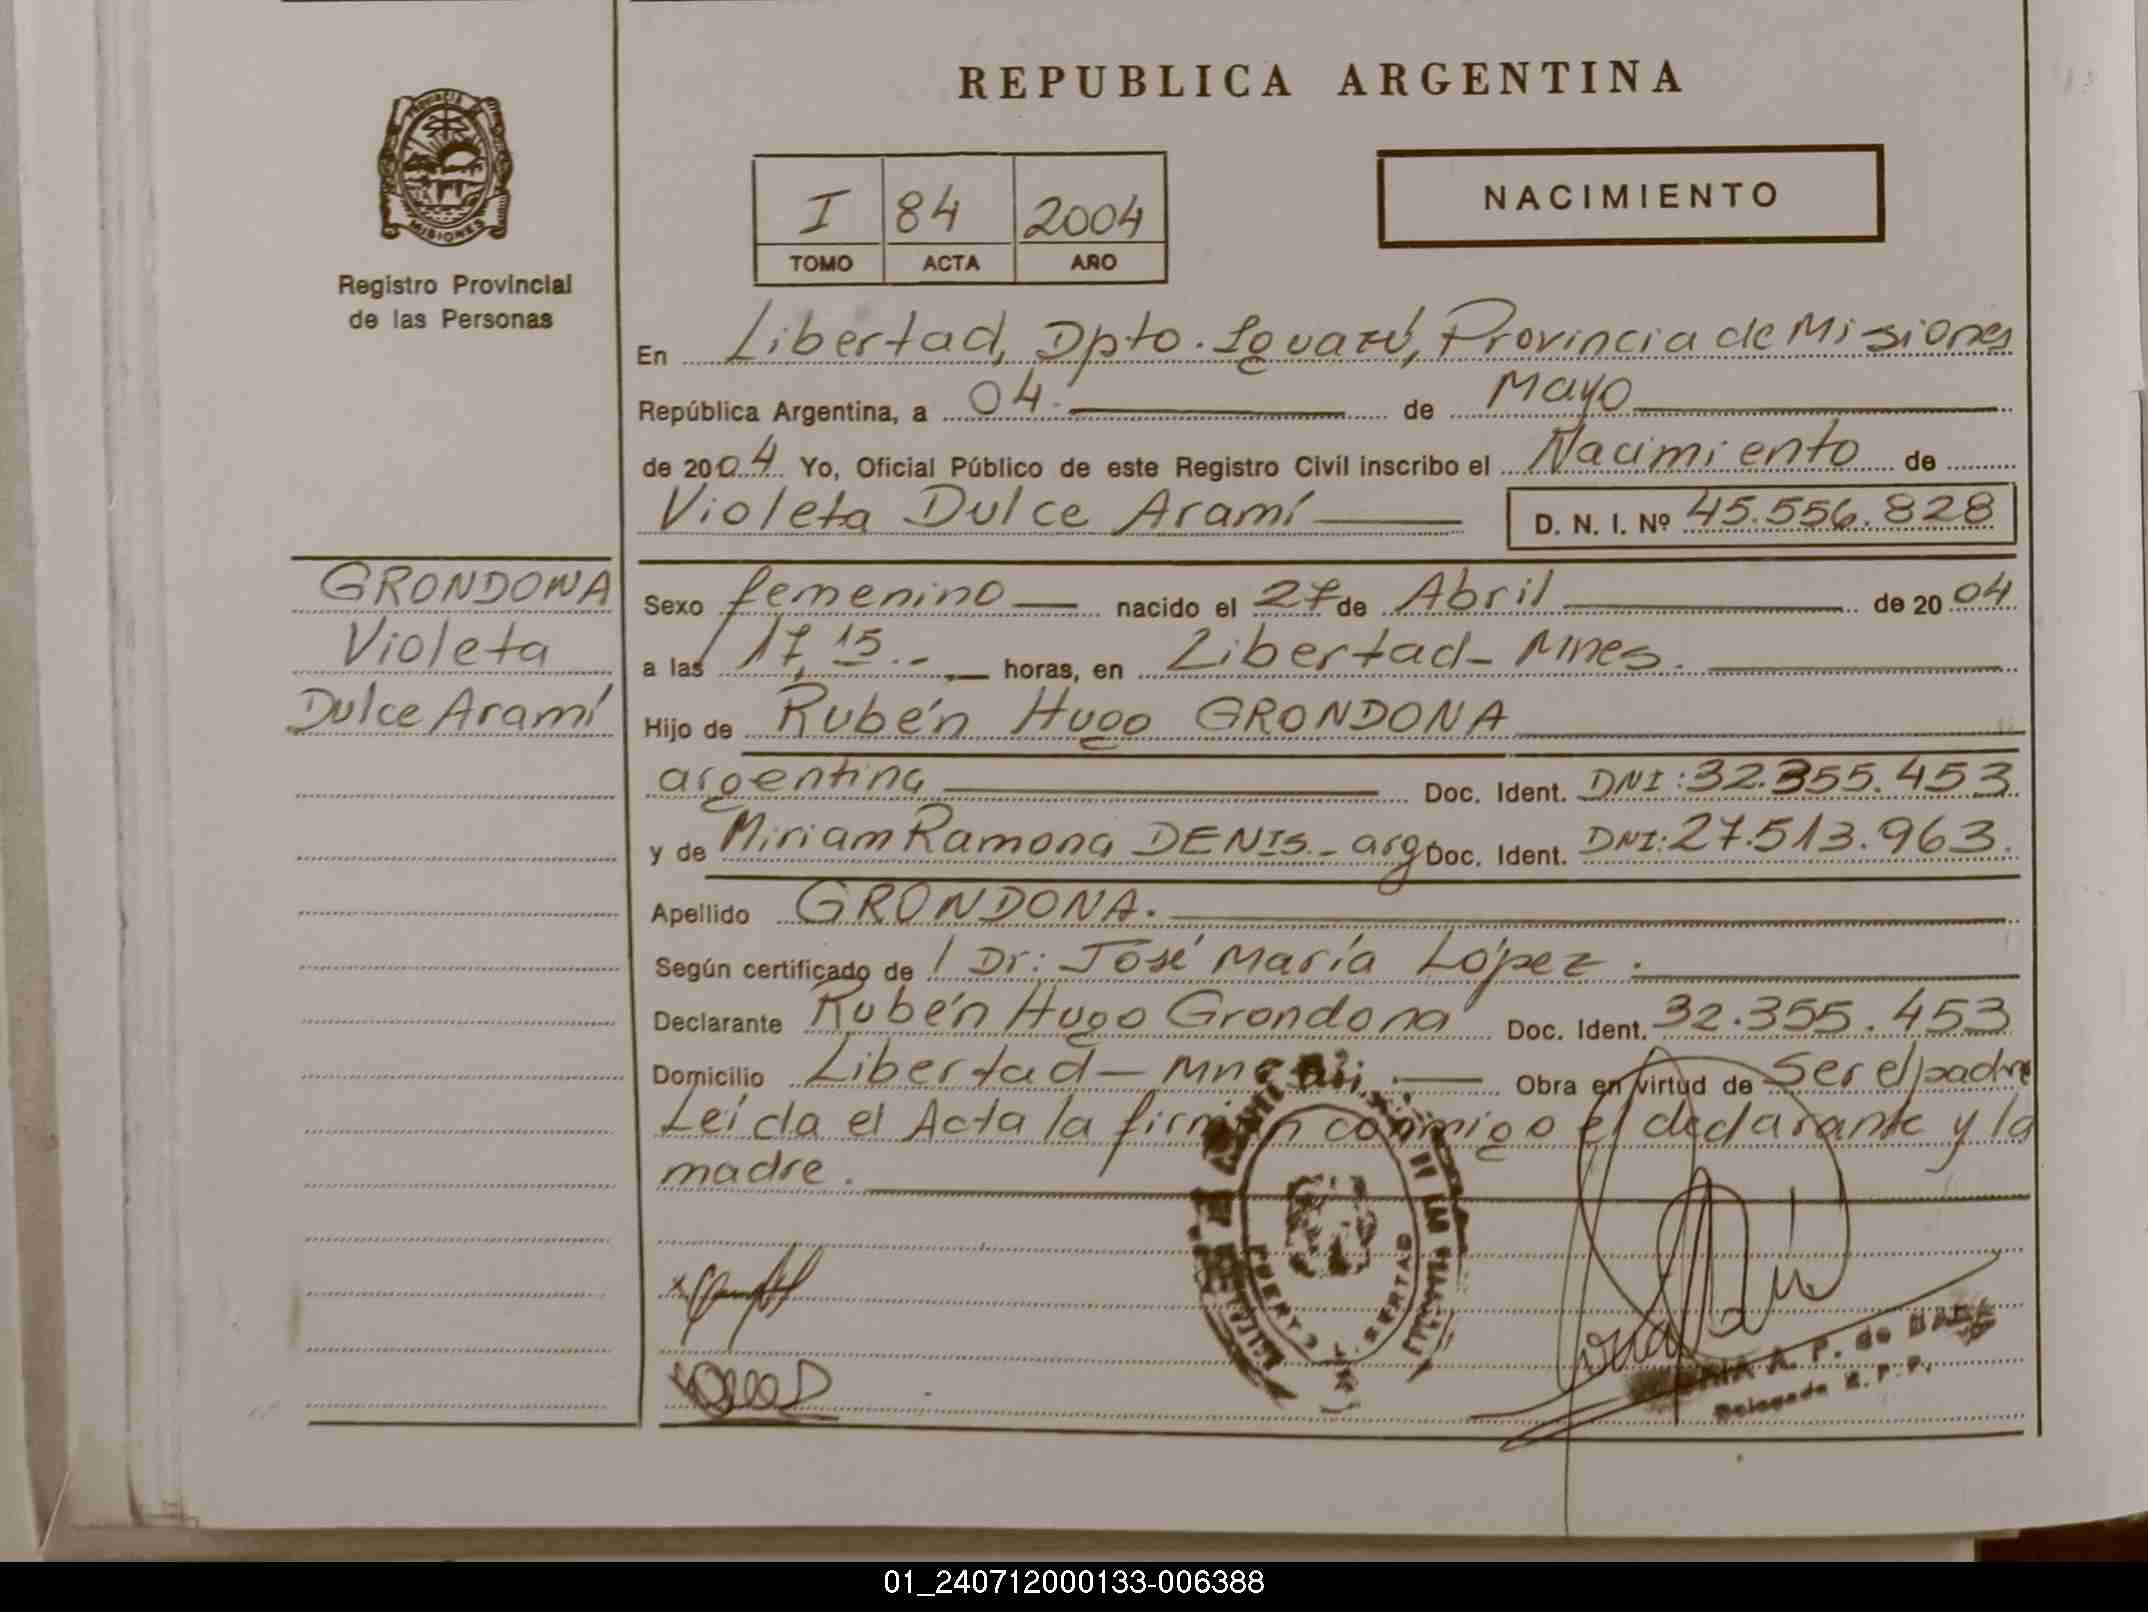 REPUBLICA ARGENTINA
PROVINCIA
MISIONES
Registro Provincial
de las Personas
I 84 2004
TOMO ACTA AÑO
NACIMIENTO
En Libertad, Dpto. Iguazú, Provincia de Misiones
República Argentina, a 04 de Mayo
de 2004 Yo, Oficial Público de este Registro Civil inscribo el Nacimiento de
Violeta Dulce Aramí D. N. I. Nº 45.556.828
GRONDONA
Violeta
Dulce Aramí
Sexo femenino nacido el 27 de Abril de 2004
a las 17,15.- horas, en Libertad - Mnes.
Hijo de Rubén Hugo GRONDONA
argentina Doc. Ident. DNI: 32.355.453
y de Miriam Ramona DENIS.- arg Doc. Ident. DNI: 27.513.963.
Apellido GRONDONA.
Según certificado de / Dr: José María López.
Declarante Rubén Hugo Grondona Doc. Ident. 32.355.453
Domicilio Libertad - Mnes. Obra en virtud de Ser el padre
Leída el Acta la firman conmigo el declarante y la
madre.
PUERTO LIBERTAD
A. P. de
Delegada R. P. P.
01_240712000133-006388